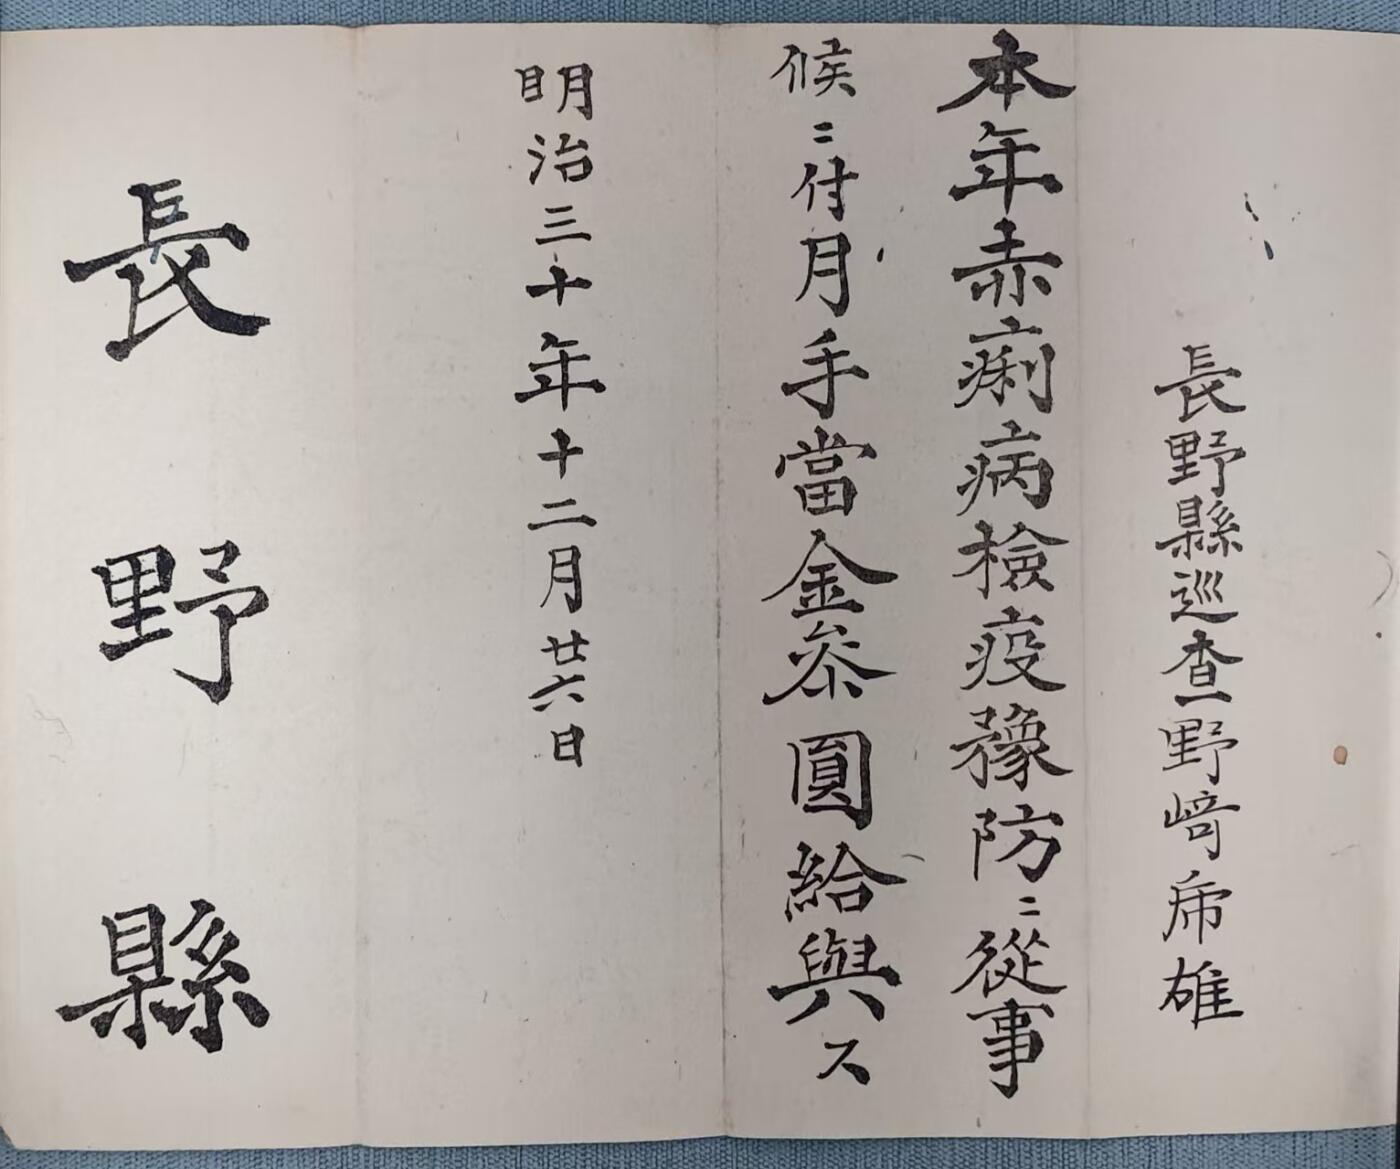 長野縣巡査野﨑乕雄
本年赤痢病檢疫豫防ニ從事
候ニ付月手當金叅圓給與ス
明治三十年十二月廿六日
長野縣